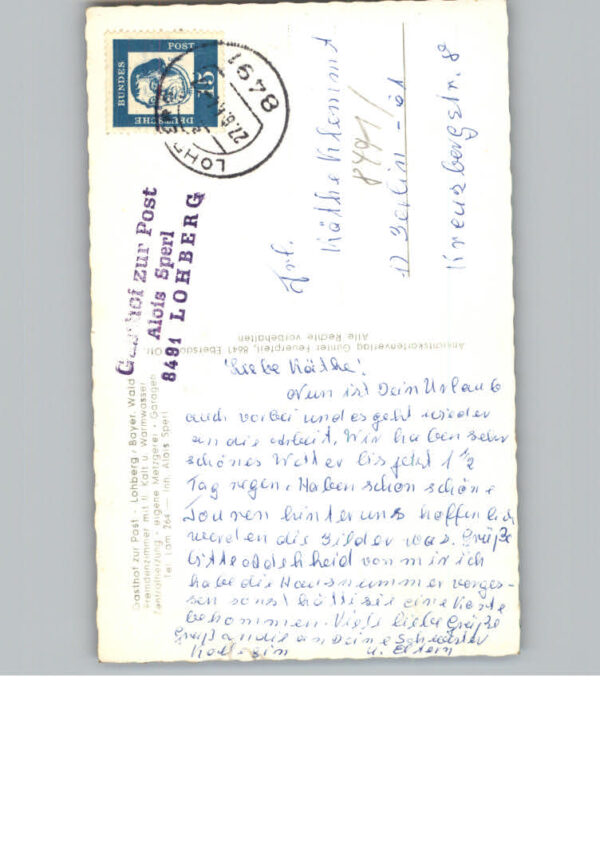 DEUTSCHE
BUNDES
POST
15
8491
LOHB
27.8.
Gasthof zur Post
Alois Sperl
8491 LOHBERG
Frl.
Käthe Klemmt
8491/
1) Berlin - 61
Kreuzbergstr. 8
Alle Rechte vorbehalten
Ansichtskartenverlag Günter Feuerpfeil, 8641 Ebersdorf
Gasthof zur Post - Lohberg / Bayer. Wald
Fremdenzimmer mit fl. Kalt u. Warmwasser
Zentralheizung - eigene Metzgerei - Garagen
Tel. Lam 264 - Inh. Alois Sperl
Liebe Käthe!
Nun ist Dein Urlaub
auch vorbei und es geht wieder
an die Arbeit. Wir haben sehr
schönes Wetter bis jetzt 1 1/2
Tag regen. Haben schon schöne
Touren hinter uns hoffentlich
werden die Bilder was. Grüße
bitte von mir ich
habe die Hausnummer verges-
sen sonst hätte sie eine Karte
bekommen. Viele liebe Grüße
Grüß an die an Deine Schwester
u. Eltern